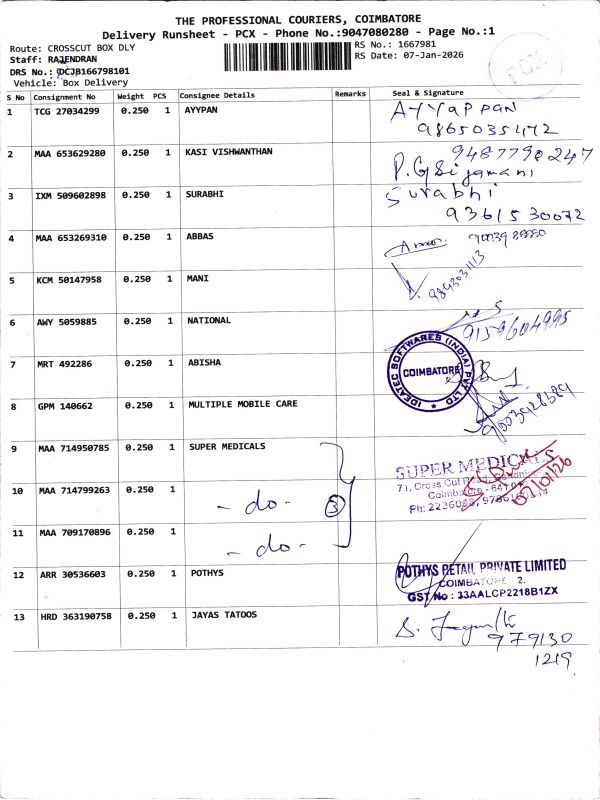 THE PROFESSIONAL COURIERS, COIMBATORE
Delivery Runsheet - PCX - Phone No.:9047080280 - Page No.:1
Route: CROSSCUT BOX DLY
Staff: RAJENDRAN
DRS No.: DCJB166798101
Vehicle: Box Delivery
RS No.: 1667981
RS Date: 07-Jan-2026
PCX
S No Consignment No Weight PCS Consignee Details Remarks Seal & Signature
1 TCG 27034299 0.250 1 AYYPAN AYYAPPAN
9865035472
2 MAA 653629280 0.250 1 KASI VISHWANTHAN 9487790247
3 IXM 509602898 0.250 1 SURABHI Surabhi
9361530072
4 MAA 653269310 0.250 1 ABBAS
5 KCM 50147958 0.250 1 MANI 9843031113
6 AWY 5059885 0.250 1 NATIONAL 9159604995
7 MRT 492286 0.250 1 ABISHA
IDEATEC SOFTWARES (INDIA) PVT LTD
COIMBATORE
8 GPM 140662 0.250 1 MULTIPLE MOBILE CARE
9 MAA 714950785 0.250 1 SUPER MEDICALS
SUPER MEDICALS
71, Cross Cut
Coimbatore
07/01/26
10 MAA 714799263 0.250 1 - do - 3
11 MAA 709170896 0.250 1 - do -
12 ARR 30536603 0.250 1 POTHYS
POTHYS RETAIL PRIVATE LIMITED
COIMBATORE 2.
GST No : 33AALCP2218B1ZX
13 HRD 363190758 0.250 1 JAYAS TATOOS
979130
1219